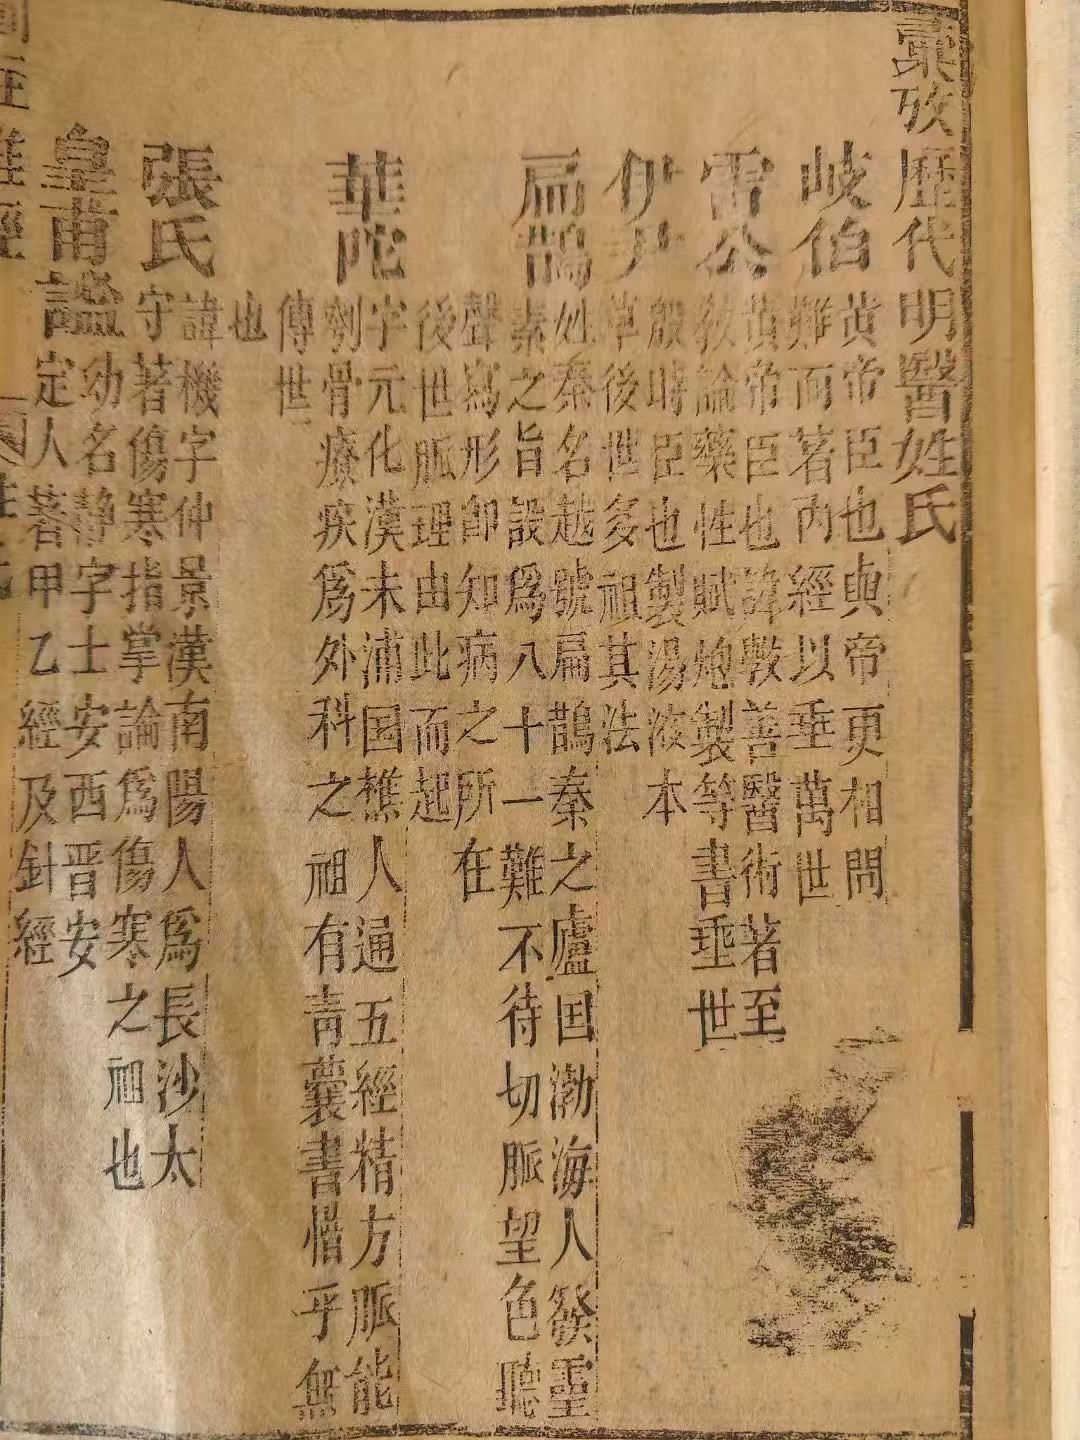 彙攷歷代明醫姓氏
岐伯
黃帝臣也與帝更相問
難而著內經以垂萬世
雷公
黃帝臣也諱斆善醫術著至
敎論藥性賦炮製等書垂世
伊尹
殷時臣也製湯液本
草後世多祖其法
扁鵲
姓秦名越號扁鵲秦之廬国渤海人發靈
素之旨設爲八十一難不待切脈望色聽
聲寫形卽知病之所在
後世脈理由此而起
華陀
字元化漢末浦国樵人通五經精方脈能
刳骨療疾爲外科之祖有靑囊書惜乎無
傳世
也
張氏
諱機字仲景漢南陽人爲長沙太
守著傷寒指掌論爲傷寒之祖也
皇甫謐
幼名靜字士安西晋安
定人著甲乙經及針經